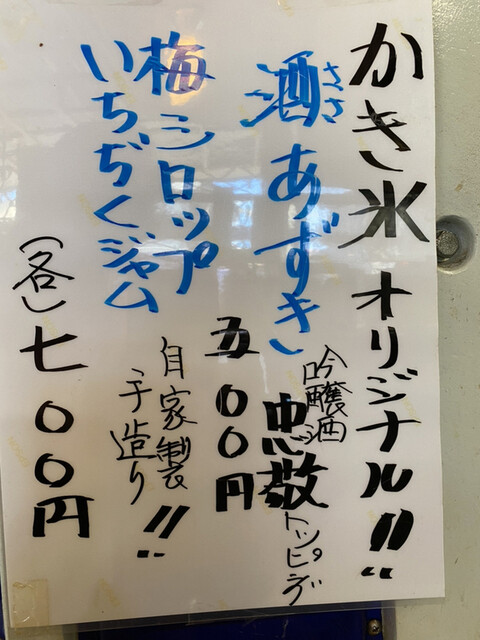 かき氷オリジナル!!
酒あずき
ささ
吟醸酒
忠敬トッピング
五〇〇円
梅シロップ
いちぢくジャム
自家製
手造り!!
(各)七〇〇円